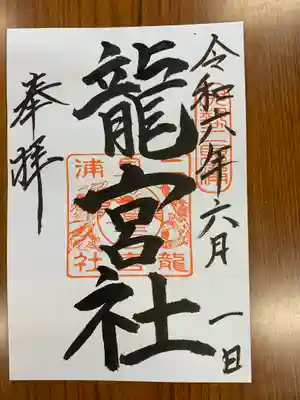 令和六年六月一日
龍宮社
奉拝